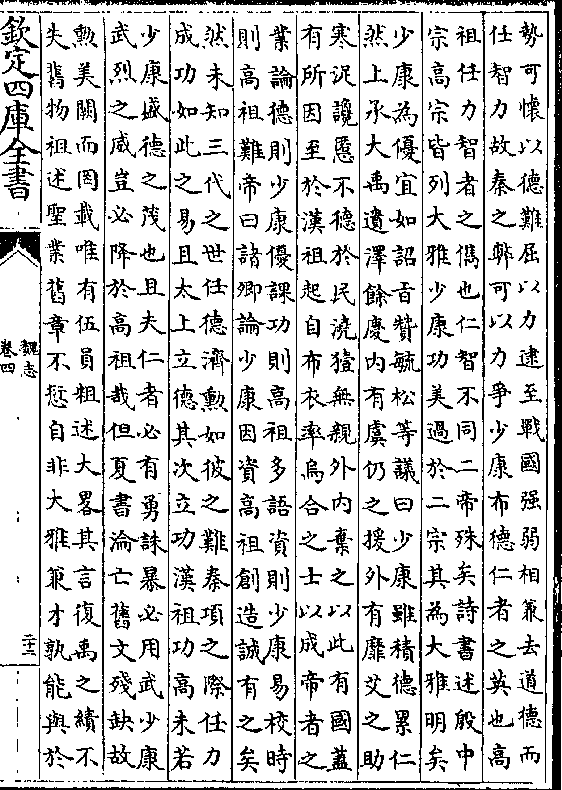 勢可懷以德難屈以力逮至戰國强弱相兼去道德而
任智力故秦之弊可以力爭少康布德仁者之英也高
祖任力智者之儁也仁智不同二帝殊矣詩書述殷中
宗高宗皆列大雅少康功美過於二宗其為大雅明矣
少康為優宜如詔旨贊毓松等議曰少康雖積德累仁
然上承大禹遺澤餘慶内有虞仍之援外有靡艾之助
寒浞讒慝不德於民澆豷無親外内棄之以此有國蓋
有所因至於漢祖起自布衣率烏合之士以成帝者之
業論德則少康優課功則高祖多語資則少康易校時
則高祖難帝曰諸卿論少康因資高祖創造誠有之矣
然未知三代之世任德濟勲如彼之難秦項之際任力
成功如此之易且太上立德其次立功漢祖功高未若
少康盛德之茂也且夫仁者必有勇誅暴必用武少康
武烈之威豈必降於高祖哉但夏書淪亡舊文殘缺故
勲美闕而罔載唯有伍員粗述大畧其言復禹之績不
失舊物祖述聖業舊章不愆自非大雅兼才孰能與於
欽定四庫全書
魏志
卷四
二十三